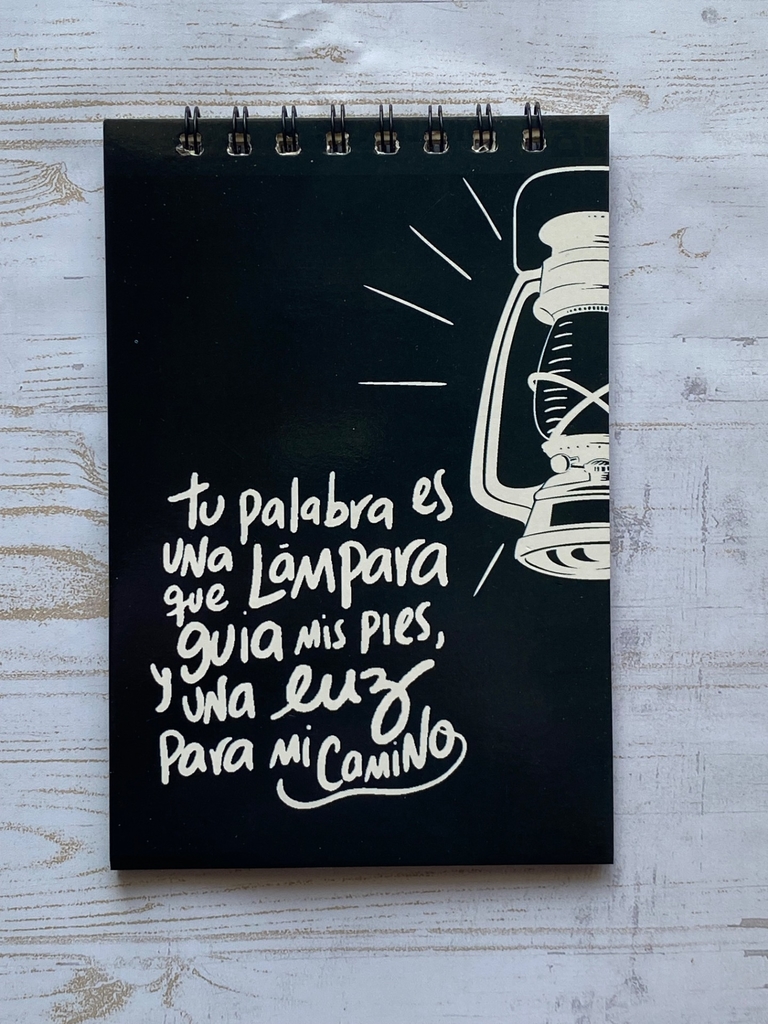 tu palabra es
una lámpara
que
guia mis pies,
y una luz
para mi camino